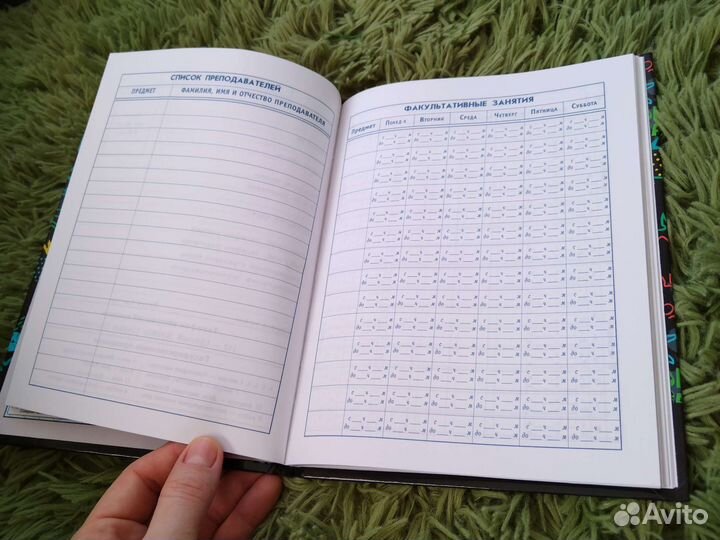 СПИСОК ПРЕПОДАВАТЕЛЕЙ
ПРЕДМЕТ ФАМИЛИЯ, ИМЯ И ОТЧЕСТВО ПРЕПОДАВАТЕЛЯ
ФАКУЛЬТАТИВНЫЕ ЗАНЯТИЯ
ПРЕДМЕТ ПОНЕД-К ВТОРНИК СРЕДА ЧЕТВЕРГ ПЯТНИЦА СУББОТА
с___ч___м с___ч___м с___ч___м с___ч___м с___ч___м с___ч___м
до___ч___м до___ч___м до___ч___м до___ч___м до___ч___м до___ч___м
Avito